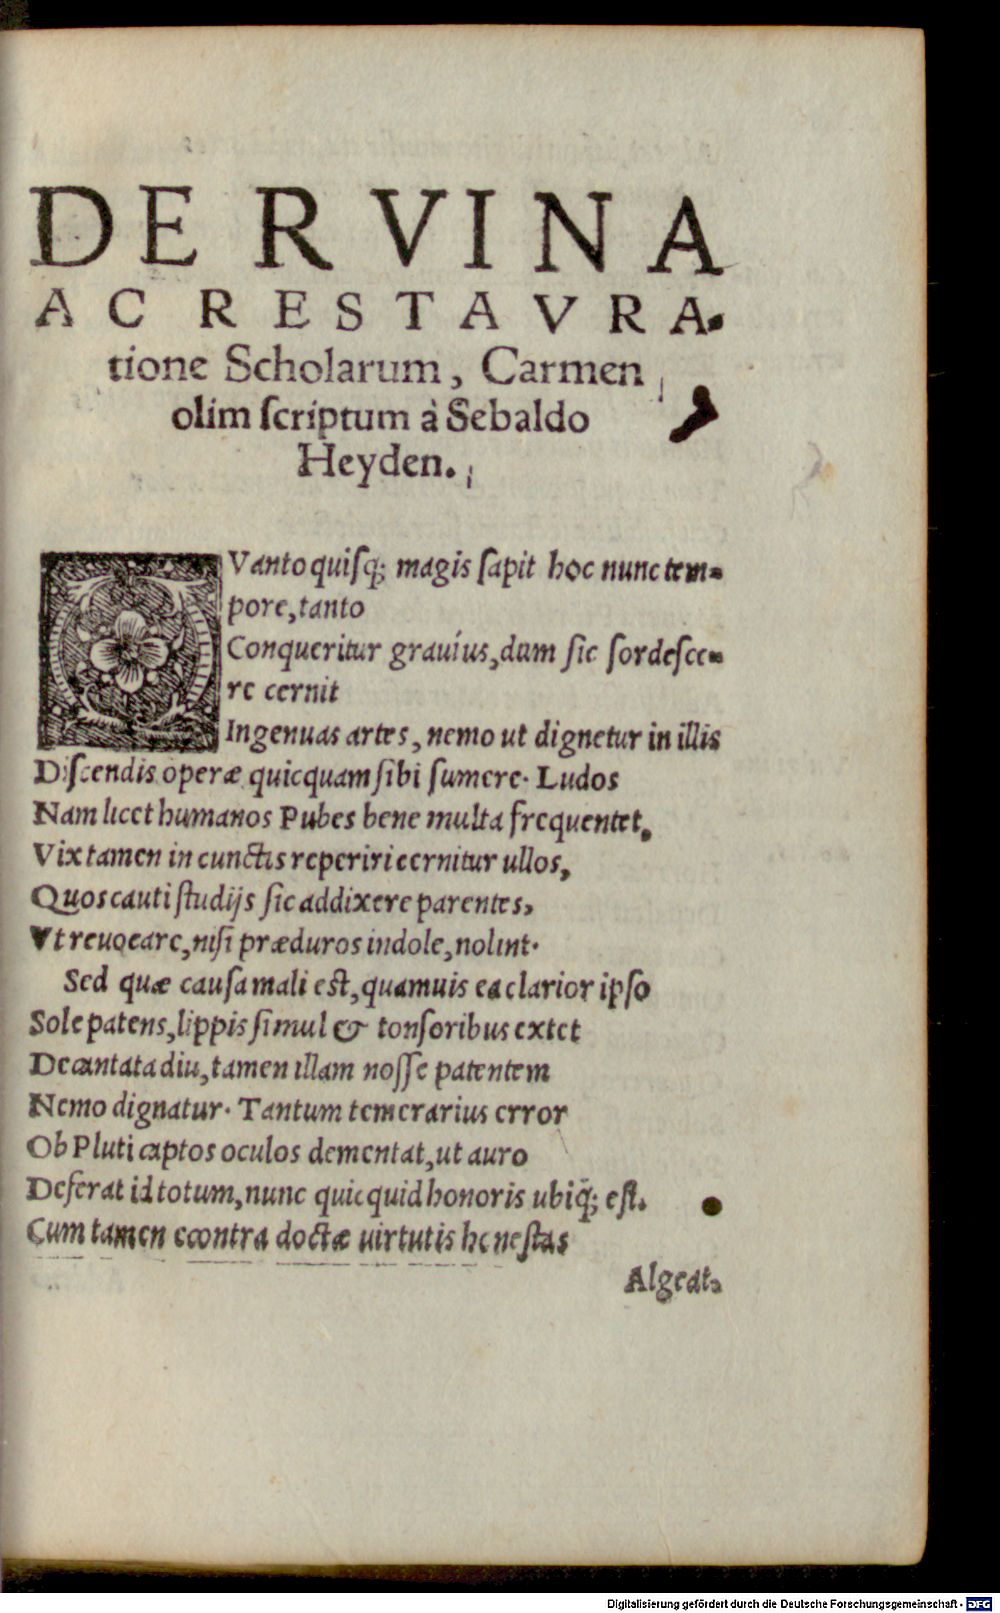 DE RVINA
AC RESTAVRA-
tione Scholarum, Carmen
olim ſcriptum à Sebaldo
Heyden.
QVanto quiſq; magis ſapit hoc nunc tem-
pore, tanto
Conqueritur grauius, dum ſic ſordeſce-
re cernit
Ingenuas artes, nemo ut dignetur in illis
Diſcendis operæ quicquam ſibi ſumere. Ludos
Nam licet humanos Pubes bene multa frequentet,
Vix tamen in cunctis reperiri cernitur ullos,
Quos cauti ſtudijs ſic addixere parentes,
Vt reuocare, niſi præduros indole, nolint.
Sed quæ cauſa mali eſt, quamuis ea clarior ipſo
Sole patens, lippis ſimul & tonſoribus extet
Decantata diu, tamen illam noſſe patentem
Nemo dignatur. Tantum temerarius error
Ob Pluti captos oculos dementat, ut auro
Deferat id totum, nunc quicquid honoris ubiq; eſt.
Cum tamen econtra doctæ uirtutis honeſtas
Algeat,
Digitalisierung gefördert durch die Deutsche Forschungsgemeinschaft - DFG